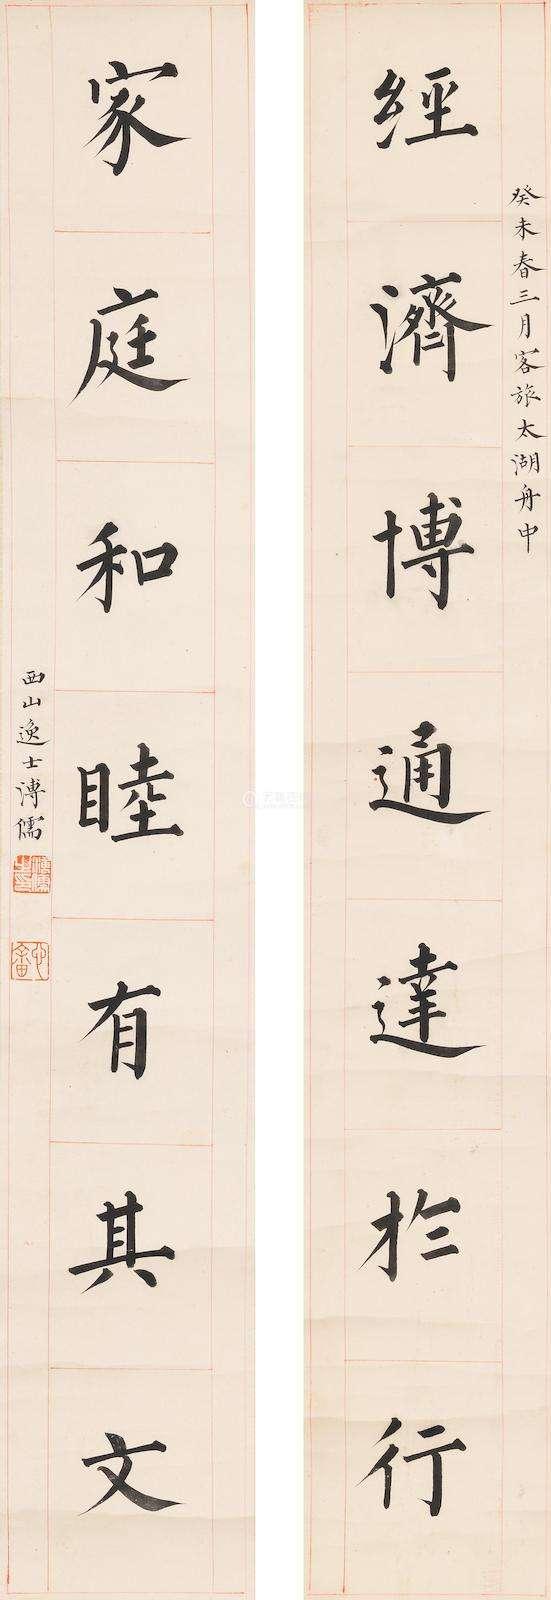 癸未春三月客旅太湖舟中
經濟博通達於行
家庭和睦有其文
西山逸士溥儒